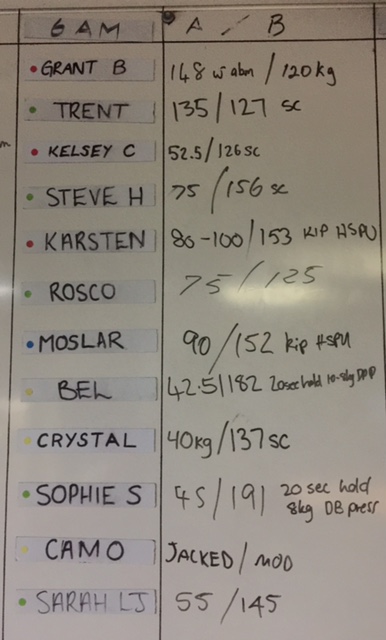 6 AM A / B
GRANT B 148 w abm / 120kg
TRENT 135 / 127 sc
KELSEY C 52.5 / 126 sc
STEVE H 75 / 156 sc
KARSTEN 80-100 / 153 KIP HSPU
ROSCO 75 / 125
MOSLAR 90 / 152 kip HSPU
BEL 42.5 / 182 20sec hold
CRYSTAL 40kg / 137 sc
SOPHIE S 45 / 191 20 sec hold
8kg DB press
CAMO JACKED / MOD
SARAH LJ 55 / 145